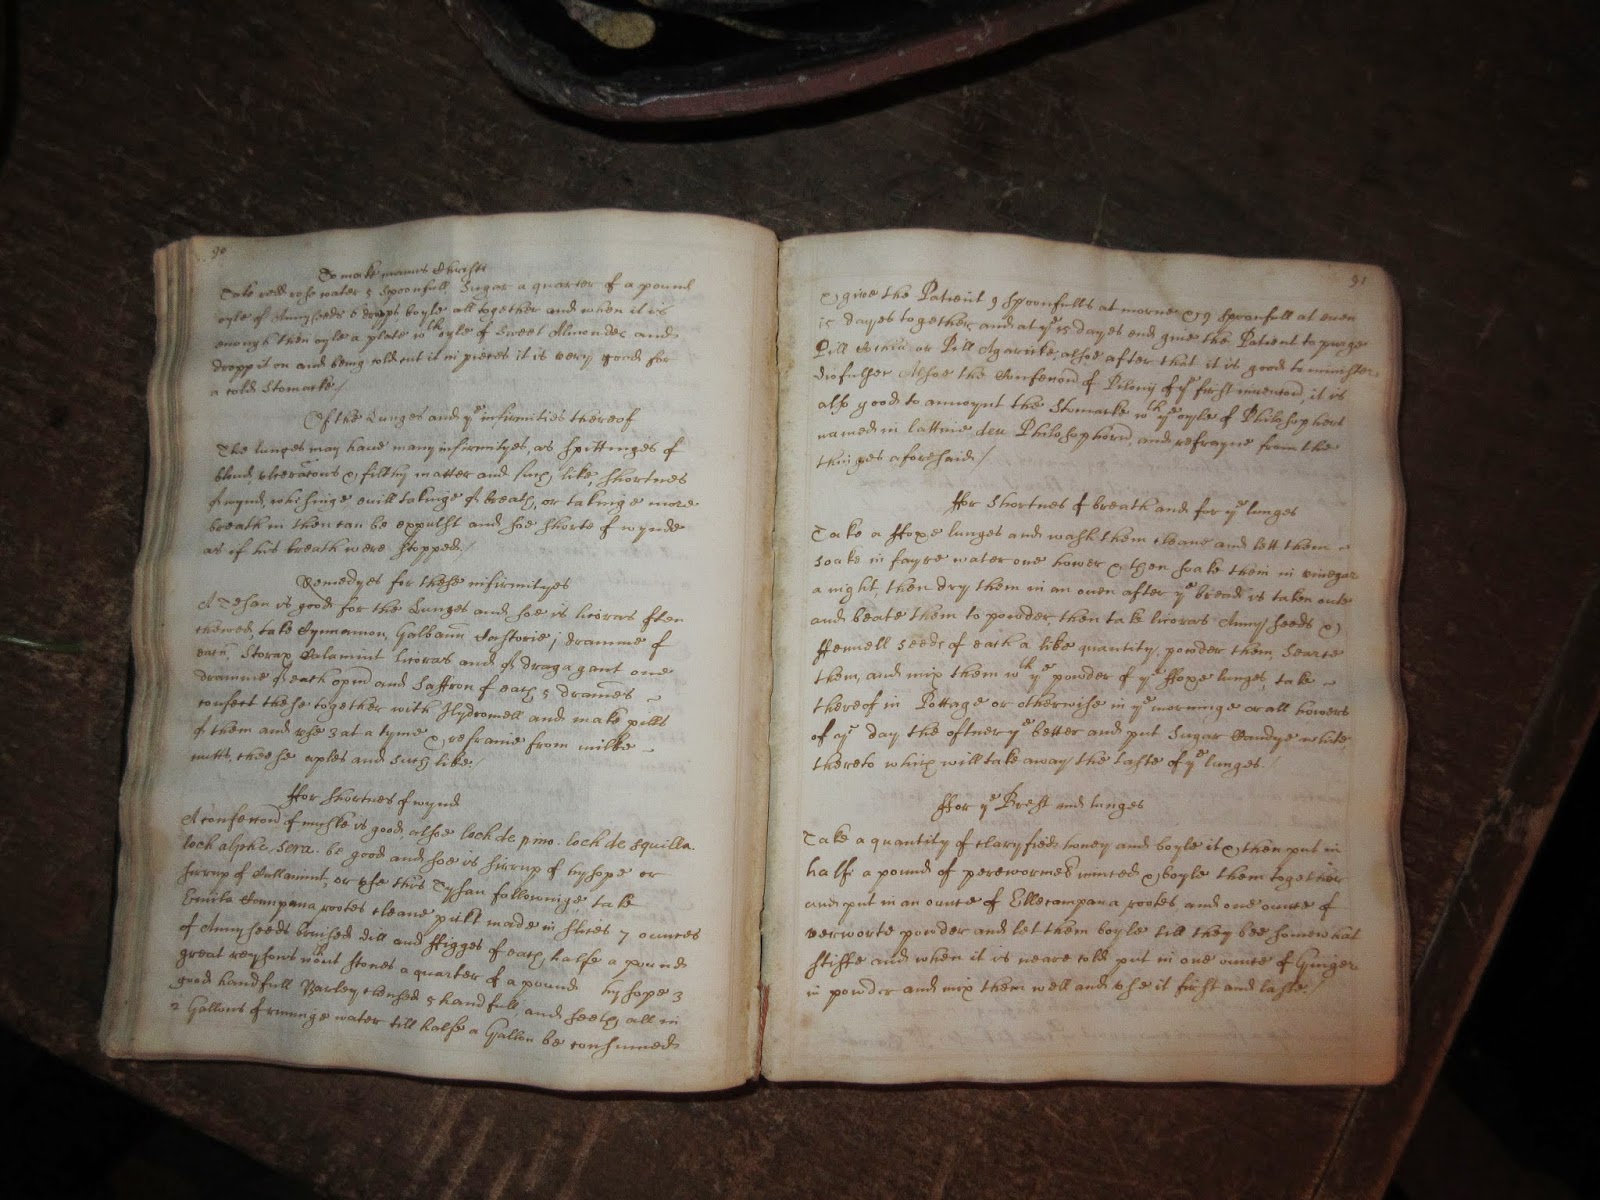 90
To make manus Christi
Take redd rose water 5 spoonfull Sugar a quarter of a pound
oyle of Annyseeds 6 dropps boyle all together and when it is
enough then oyle a plate wth oyle of sweet Almondes and
dropp it on and being cold cut it in pieces it is very good for
a cold Stomacke /
Of the Lunges and ye infirmities thereof
The lunges may have many infirmityes, as spittinges of
bloud, ulceracons & filthy matter and such like, shortnes
of wynd, whisinge evill takinge of breath, or takinge more
breath in then can be expulst and soe shorte of wynde
as if his breath were stopped /
Remedyes for these infirmityes
A Tysan is good for the Lunges and soe is licoras often
chewed, take Cynnamon, Galbanu Castorie, j dramme of
each, Storax Calamint licoras and of dragagant one
dramme of each opin and Saffron of each 5 drames
confect these together with Hydromell and make pills
of them and use 3 at a tyme & refraine from milke
nutts, cheese aples and such like /
ffor shortnes of wynd
A confeccon of muske is good, alsoe loch de pino. loch de squilla.
loch alphe, sera. be good and soe is sirrup of hysope or
sirrup of Callamint, or use this Tysan followinge, take
Enula Campana rootes cleane pilt made in slices 7 ounces
of Annyseeds bruised dill and ffigges of each halfe a pound
great reysons wthout stones a quarter of a pound hysope 3
good handfull Barley clensed 5 handfull, and seeth all in
2 Gallons of runinge water till halfe a Gallon be consumed
91
& give the Patient 9 spoonfulls at morne & 9 spoonfull at even
15 dayes together, and at ye 15 dayes end give the Patient to purge
Pill Cochia or Pill Agaricke, alsoe after that it is good to minister
Alsoe the Confeccon of Pilony of ye first invencon, it is
also good to annoynt the Stomacke wth ye oyle of Philosophers
named in lattine oleu Philosophoru, and refrayne from the
thinges aforesaid /
ffor Shortnes of breath and for ye lunges
Take a ffoxe lunges and wash them cleane and lett them
soake in fayre water one hower & then soake them in vinegar
a night, then dry them in an oven after ye bread is taken oute
and beate them to powder then take licoras Annyseeds &
ffennell seeds of each a like quantity, powder them, Searce
them, and mix them wth ye powder of ye ffoxe lunges, take
thereof in Pottage or otherwise in ye morninge or all howers
of ye day the oftner ye better and put Sugar Candye white
thereto which will take away the taste of ye lunges.
ffor ye Brest and lunges
Take a quantity of claryfied honey and boyle it & then put in
halfe a pound of perewormes minced & boyle them together
and put in an ounce of Ellecampana rootes, and one ounce of
verworte powder and let them boyle till they bee somewhat
stiffe and when it is neare cold put in one ounce of Ginger
in powder and mix them well and use it first and laste /